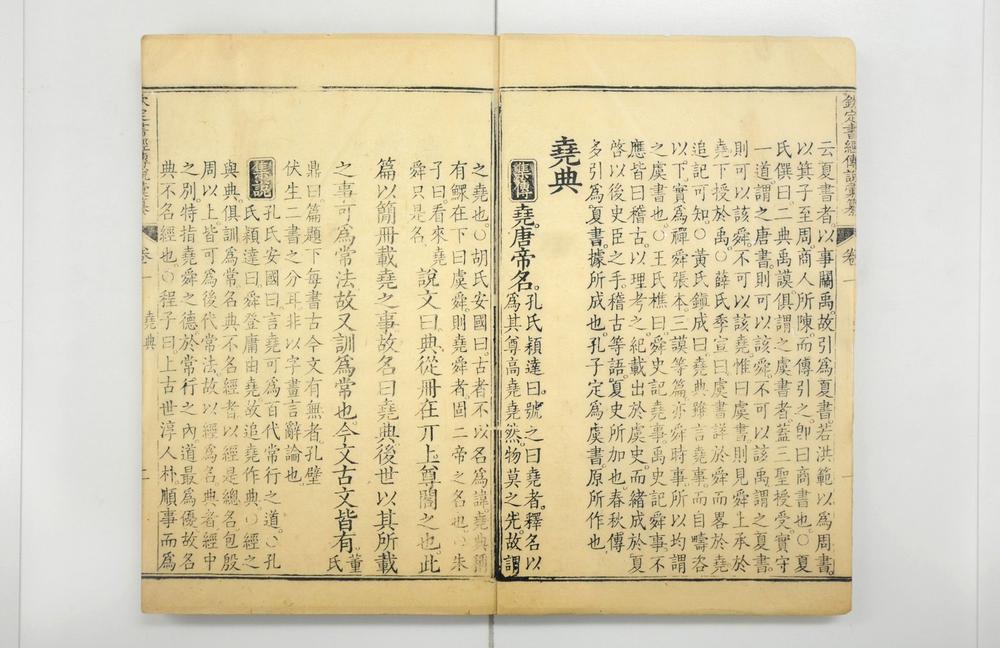 欽定書經傳說彙纂
卷一
云夏書者以事關禹故引爲夏書若洪範以爲周書
以箕子至周商人所陳而傳引之卽曰商書也〇夏
氏僎曰二典禹謨俱謂之虞書者蓋三聖授受實守
一道謂之唐書則可以該舜不可以該禹謂之夏書
則可以該舜不可以該堯惟曰虞書則見舜上承於
堯下授於禹〇薛氏季宣曰虞書詳於舜而畧於堯
追記可知〇黃氏鎭成曰堯典雖言堯事而自疇咨
以下實爲禪舜張本三謨等篇亦舜時事所以均謂
之虞書也〇王氏樵曰舜史記堯事禹史記舜事不
應皆曰稽古以理考之紀載出於虞史而緒成於夏
啓以後史臣之手稽古等語夏史所加也春秋傳
多引爲夏書據所成也孔子定爲虞書原所作也
堯典
集傳 堯唐帝名 孔氏穎達曰號之曰堯者釋名以
爲其尊高堯堯然物莫之先故謂
之堯也〇胡氏安國曰古者不以名爲諱堯典稱
有鰥在下曰虞舜則堯舜者固二帝之名也〇朱
子曰看來堯
舜只是名 說文曰典從冊在丌上尊閣之也此
篇以簡冊載堯之事故名曰堯典後世以其所載
之事可爲常法故又訓爲常也今文古文皆有 董氏
鼎曰篇題下每書古今文有無者孔壁
伏生二書之分耳非以字畫言辭論也
集說 孔氏安國曰言堯可爲百代常行之道〇孔
氏穎達曰舜登庸由堯故追堯作典〇經之
與典俱訓爲常名典不名經者以經是總名包殷
周以上皆可爲後代常法故以經爲名典者經中
之別特指堯舜之德於常行之內道最爲優故名
典不名經也〇程子曰上古世淳人朴順事而爲
欽定書經傳說彙纂
卷一
堯典
二